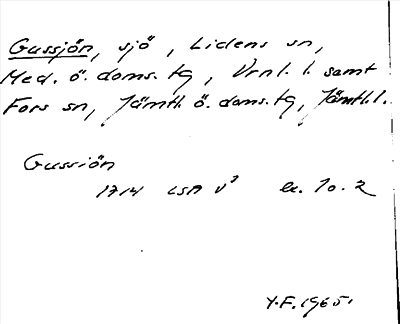 Gussjön, sjö, Lidens sn,
Med. ö. doms. tg, Vrnl. l. samt
Fors sn, Jämtl. ö. doms. tg, Jämtl. l.
Gussiön
1714 LSA V³ lu. 10. 2
Y.F. 1965.